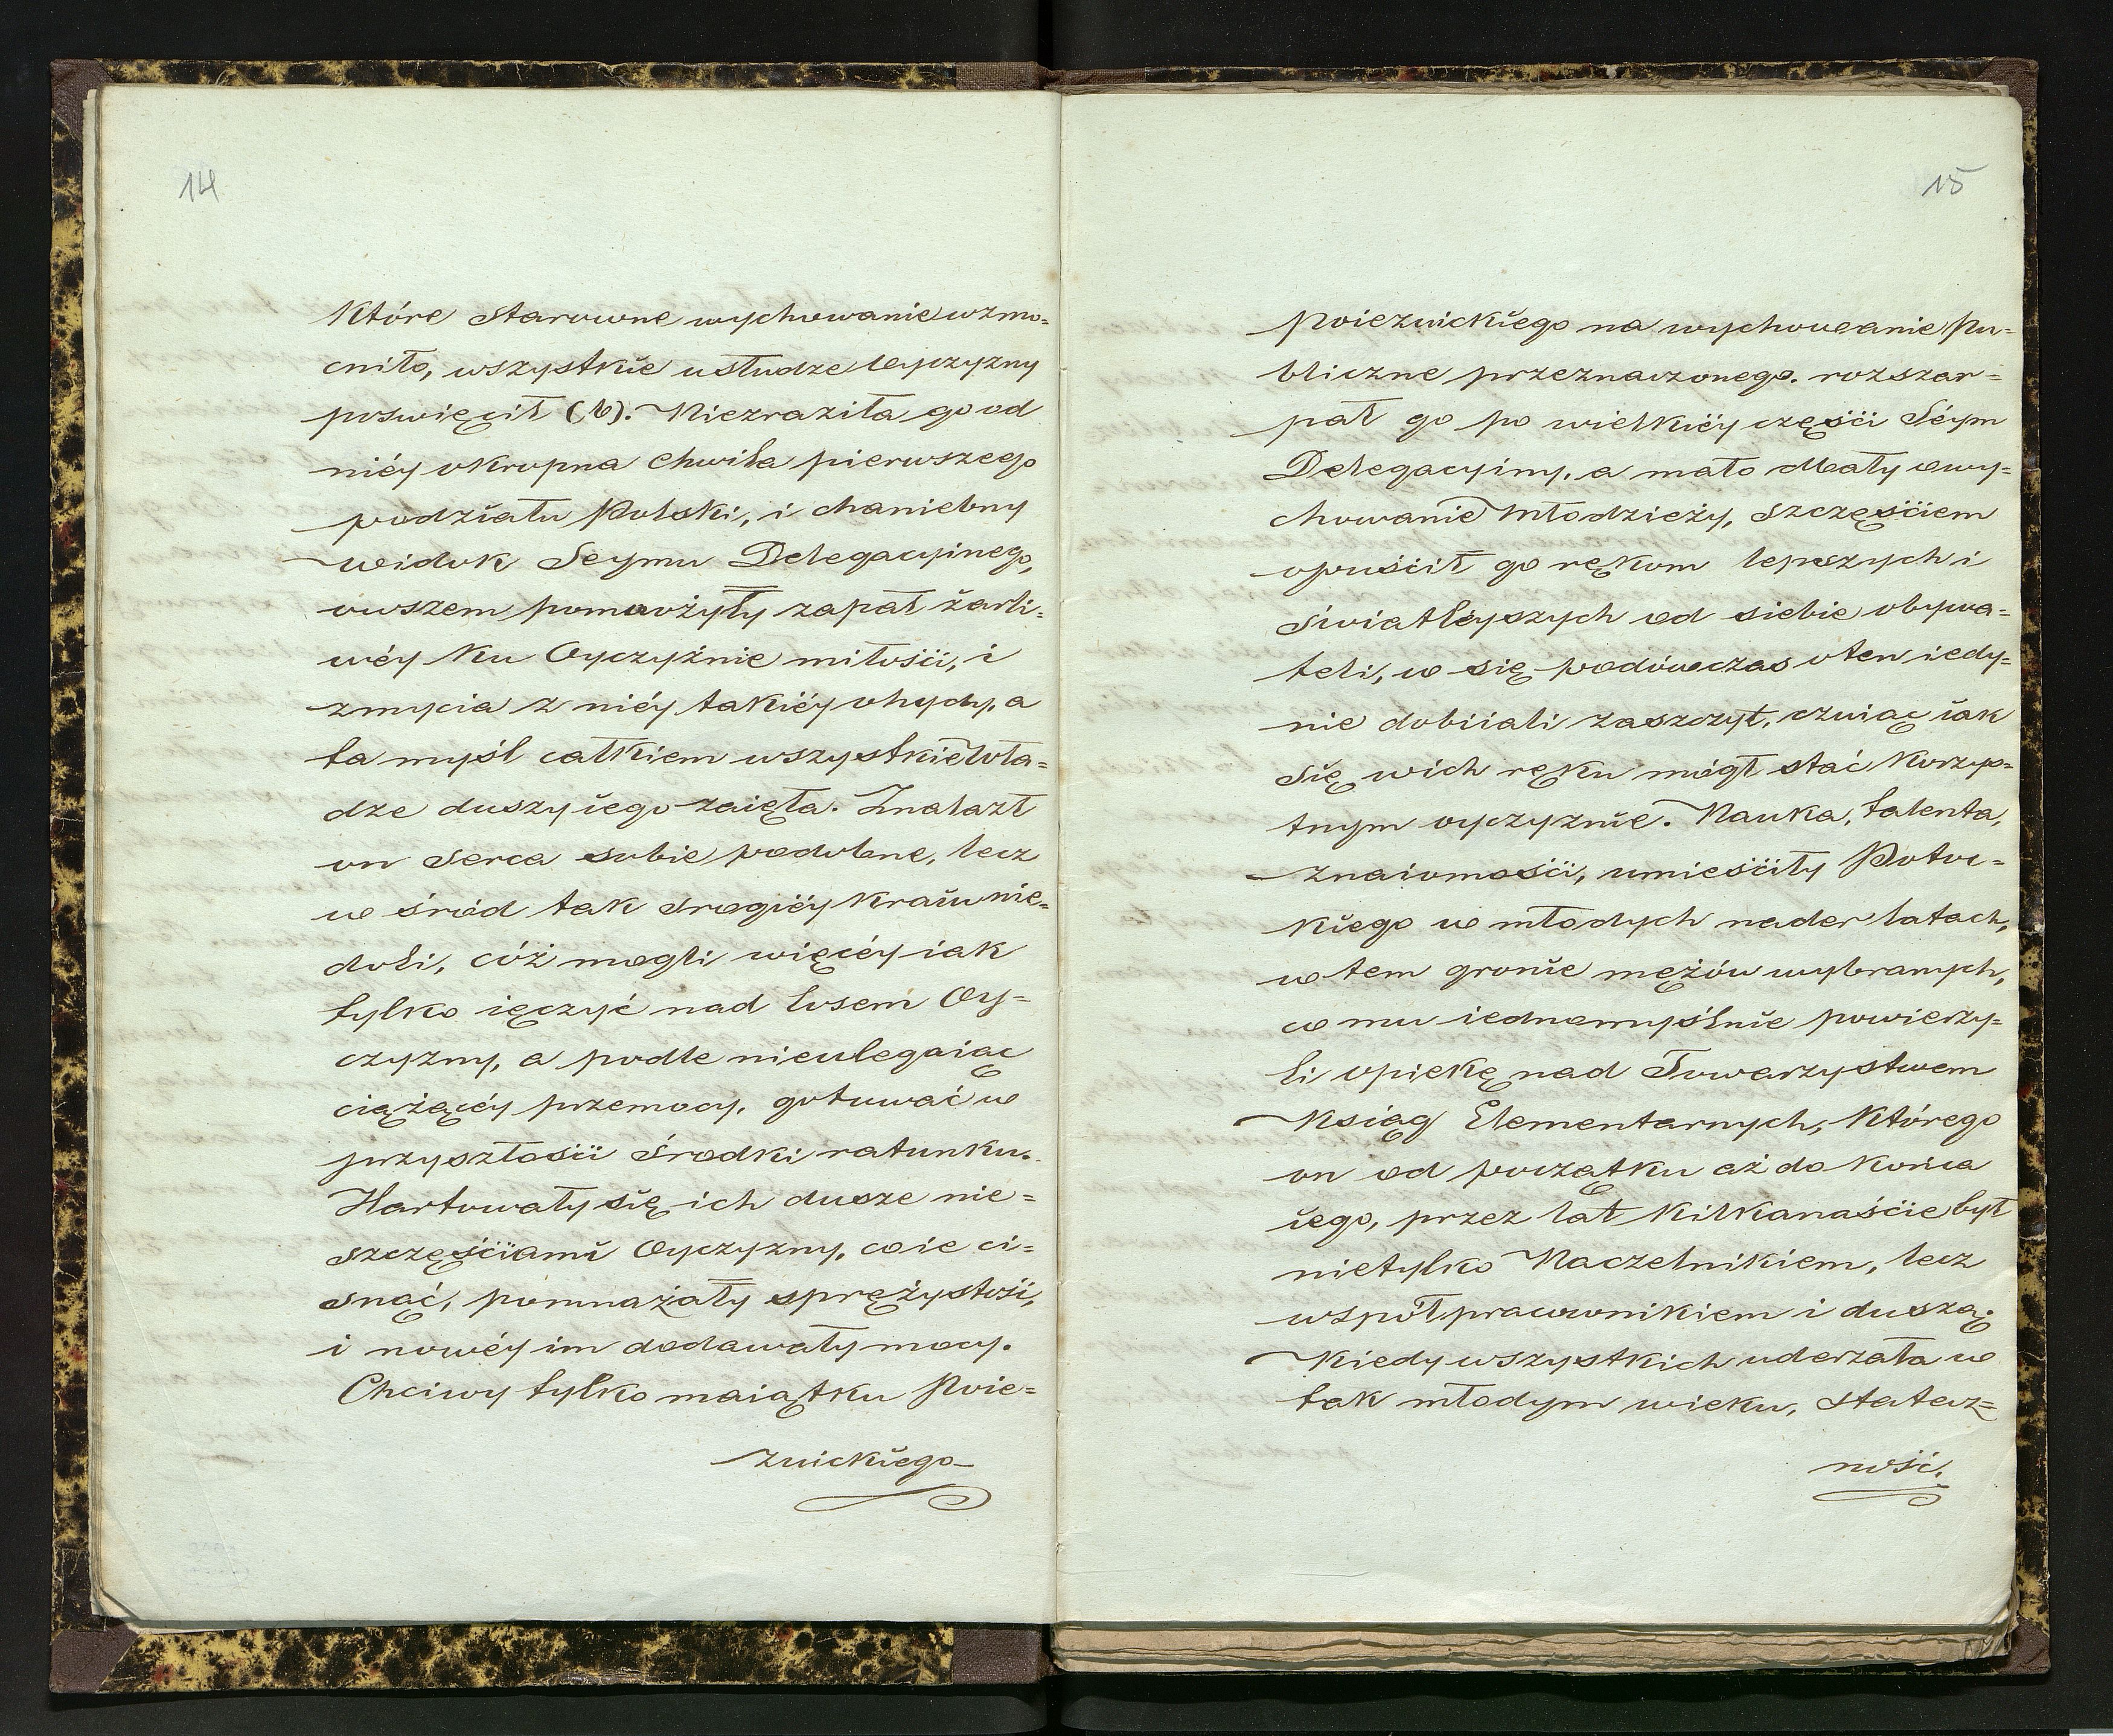 14
Które starowne wychowanie wzmo=
cniło, wszystkie usłudze Oyczyzny
poświęcił (b). Niezraziła go od
niéy okropna chwila pierwszego
podziału Polski, i chaniebny
widok Seymu Delegacyinego,
owszem pomnożyły zapał żarli=
wéy ku Oyczyźnie miłości, i
zmycia z niéy takiéy ohydy, a
ta myśl całkiem wszystkie wła=
dze duszy iego zaięła. Znalazł
on serca sobie podobne, lecz
w śród tak srogiéy kraiu nie=
doli, cóż mogli więcéy iak
tylko ięczyć nad losem Oy=
czyzny, a podle nieulegaiąc
ciążącéy przemocy, gotować w
przyszłości środki ratunku.
Hartowały się ich dusze nie=
szczęściami Oyczyzny, co ie ci=
snąć, pomnażały sprężystości,
i nowéy im dodawały mocy.
Chciwy tylko maiątku Poie=
zuickiego
15
Poiezuickiego na wychowanie Pu=
bliczne przeznaczonego, rozszar=
pał go po wielkiéy części Séym
Delegacyiny, a mało dbały o wy=
chowanie Młodzieży, szczęściem
opuścił go rękom lepszych i
światléyszych od siebie obywa=
teli, co się podówczas o ten iedy=
nie dobiiali zaszczyt, czuiąc iak
się w ich ręku mógł stać korzys=
tnym oyczyznie. Nauka, talenta,
znaiomości, umieściły Potoc=
kiego w młodych nader latach,
w tem gronie mężów wybranych,
co mu iednomyślnie powierzy=
li opiekę nad Towarzystwem
Ksiąg Elementarnych, którego
on od początku aż do końca
iego, przez lat kilkanaście był
nietylko Naczelnikiem, lecz
współpracownikiem i duszą.
Kiedy wszystkich uderzała w
tak młodym wieku, statecz=
ność,